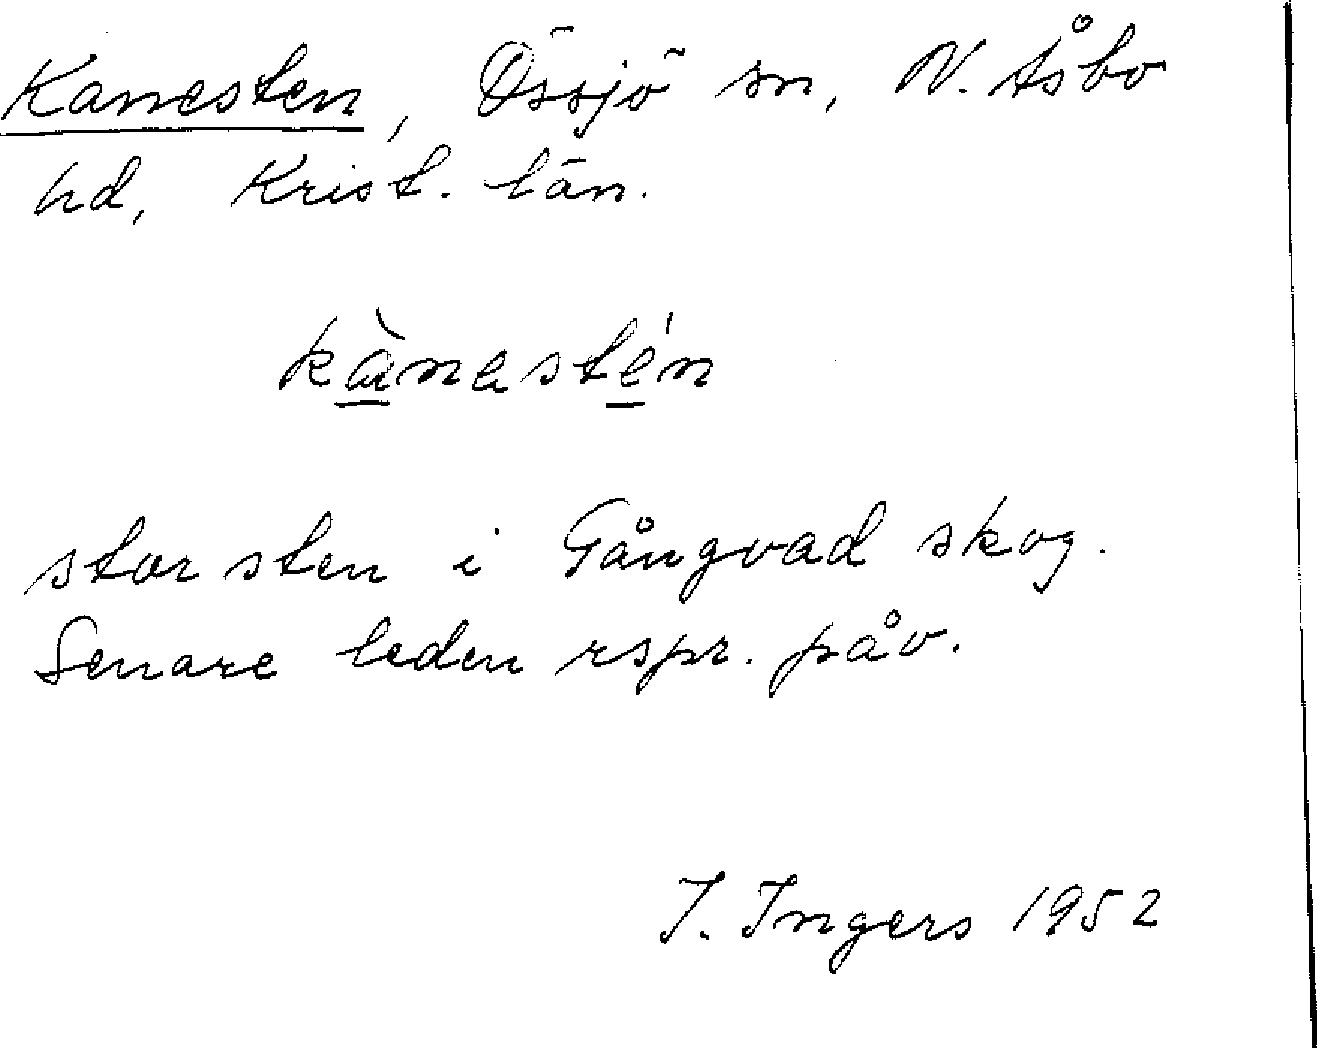 Kanesten, Össjö sn, N. Åsbo
hd, Krist. län.
kànastén
stor sten i Gångvad skog.
Senare leden rspr. påv.
I. Ingers 1952